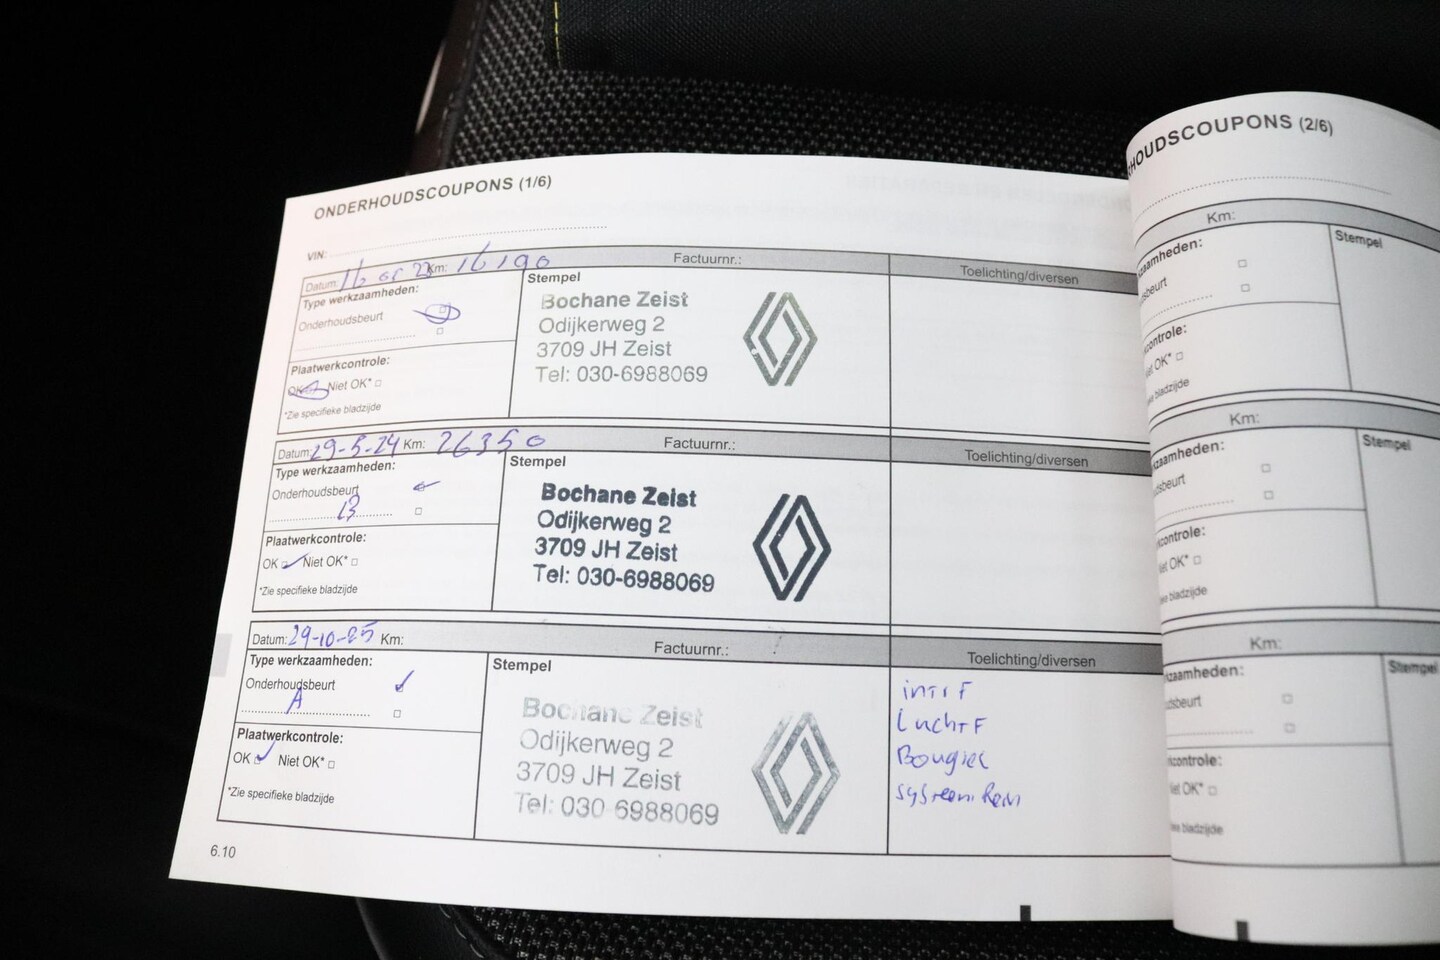 ONDERHOUDSCOUPONS (1/6)
VIN:
Datum: 16 Km: 16190 Factuurnr.: Toelichting/diversen
Type werkzaamheden:
Onderhoudsbeurt
Plaatwerkcontrole:
OK Niet OK*
*Zie specifieke bladzijde
Stempel
Bochane Zeist
Odijkerweg 2
3709 JH Zeist
Tel: 030-6988069
Datum: 29-5-24 Km: 26350 Factuurnr.: Toelichting/diversen
Type werkzaamheden:
Onderhoudsbeurt
B
Plaatwerkcontrole:
OK Niet OK*
*Zie specifieke bladzijde
Stempel
Bochane Zeist
Odijkerweg 2
3709 JH Zeist
Tel: 030-6988069
Datum: 29-10-25 Km: Factuurnr.: Toelichting/diversen
Type werkzaamheden:
Onderhoudsbeurt
A
Plaatwerkcontrole:
OK Niet OK*
*Zie specifieke bladzijde
Stempel
Bochane Zeist
Odijkerweg 2
3709 JH Zeist
Tel: 030 6988069
intrF
LuchtF
Bougies
6.10
RHOUDSCOUPONS (2/6)
Km:
kzaamheden:
dsbeurt
Stempel
kcontrole:
iet OK*
ke bladzijde
Km:
kzaamheden:
dsbeurt
Stempel
kcontrole:
iet OK*
ke bladzijde
Km:
kzaamheden:
dsbeurt
Stempel
kcontrole:
iet OK*
ke bladzijde